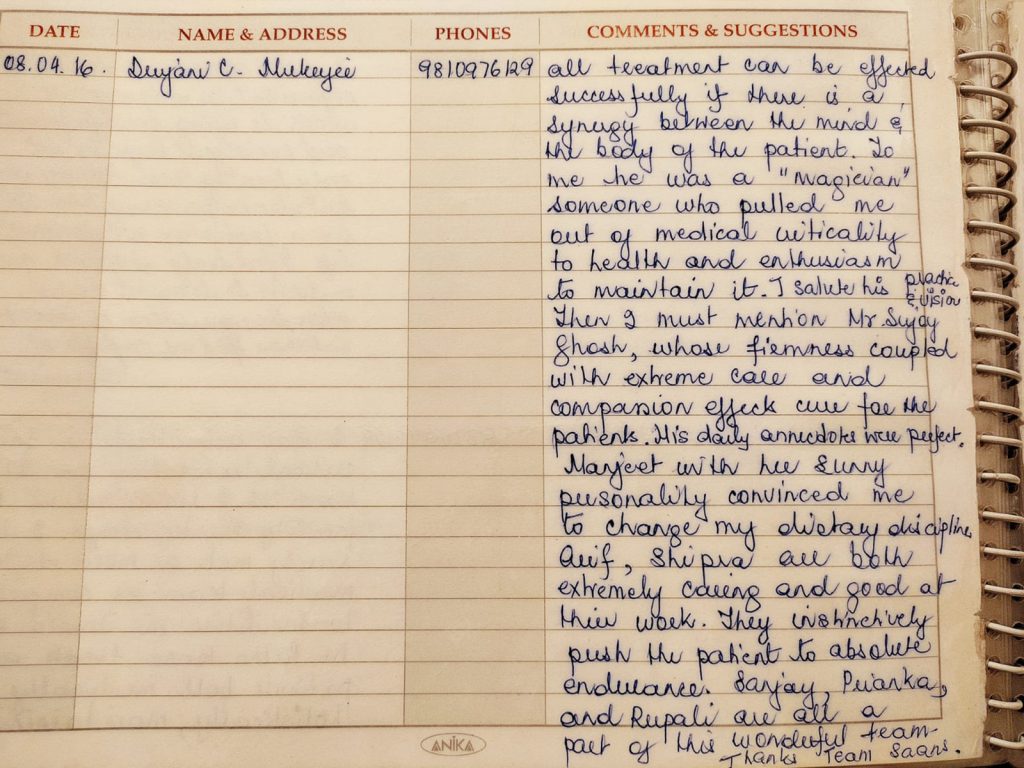 DATE NAME & ADDRESS PHONES COMMENTS & SUGGESTIONS
08.04.16. C. Mukerjee 9810976129 all treatment can be effected
successfully if there is a
synergy between the mind &
the body of the patient. To
me he was a "magician"
someone who pulled me
out of medical criticality
to health and enthusiasm
to maintain it. I salute his practice
& vision
Then I must mention Mr. Sujoy
Ghosh, whose firmness coupled
with extreme care and
compassion effects cure for the
patients. His daily annecdotes were perfect.
Manjeet with her sunny
personality convinced me
to change my dietary discipline
Arif, Shipra are both
extremely caring and good at
their work. They instinctively
push the patient to absolute
endurance. Sanjay, Prianka,
and Rupali are all a
part of this wonderful team-
Thanks Team Saans.
ANIKA